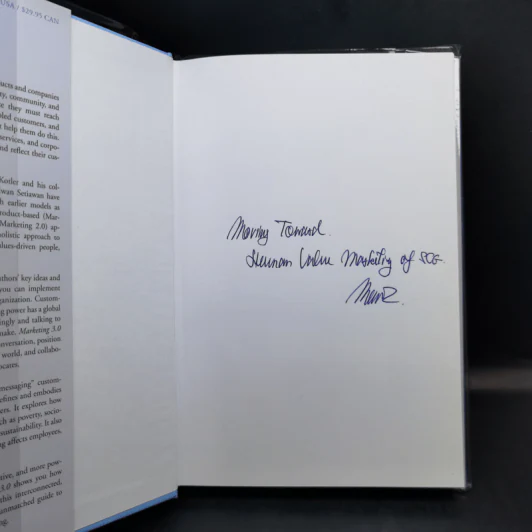 USA / $29.95 CAN
ucts and companies
ty, community, and
e they must reach
led customers, and
help them do this.
services, and corpo-
nd reflect their cus-
Kotler and his col-
wan Setiawan have
h earlier models as
roduct-based (Mar-
Marketing 2.0) ap-
holistic approach to
alues-driven people,
uthors' key ideas and
you can implement
ganization. Custom-
ng power has a global
ingly and talking to
make, Marketing 3.0
nversation, position
world, and collabo-
ocates.
messaging" custom-
efines and embodies
ers. It explores how
ch as poverty, socio-
sustainability. It also
ng affects employees,
ative, and more pow-
3.0 shows you how
this interconnected,
unmatched guide to
ng.
Moving Toward
Human Value Marketing of